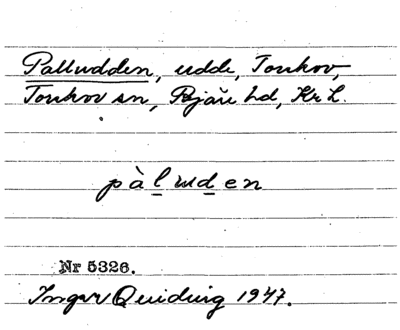 Palludden, udde, Tonkov,
Tonkov sn, Bjäre hd, Kr L.
pàluden
Nr 5326.
Ingvar Quiding 1947.